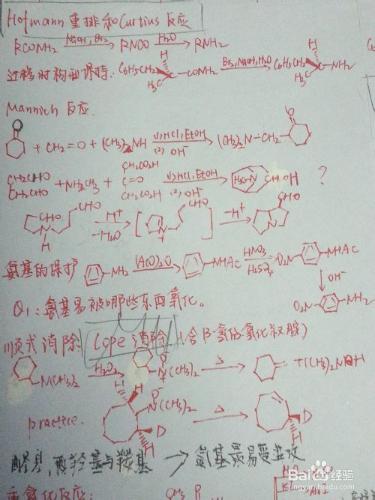 Hofmann重排和Curtius反应
RCONH₂ NaOH, Br₂ RNCO H₂O RNH₂
过程时构型保持. C₆H₅CH₂ H H₃C CONH₂ Br₂, NaOH, H₂O C₆H₅CH₂ H H₃C NH₂
Mannich反应.
O + CH₂=O + (CH₃)₂NH (1) HCl, EtOH (2) OH⁻ (CH₃)₂N-CH₂ O
CH₂CHO CH₂CHO + NH₂CH₃ + CH₂CO₂H C=O CH₂CO₂H (1) HCl, EtOH (2) OH⁻ ?
N H CHO -H⁺ -H₂O N⁺ CHO -H⁺ N CHO
氨基的保护 NH₂ (Ac)₂O NHAc HNO₃ H₂SO₄ O₂N NHAc
OH⁻
Q1: 氨基易被哪些东西氧化。 O₂N NH₂
顺式消除 Cope消除 (含β-氢的氧化叔胺)
N(CH₃)₂ H₂O₂ N(CH₃)₂ △ + (CH₃)₂NOH
practice. H N(CH₃)₂ D H △ D H
羟基与羰基 → 氨基最易
Bai 经验